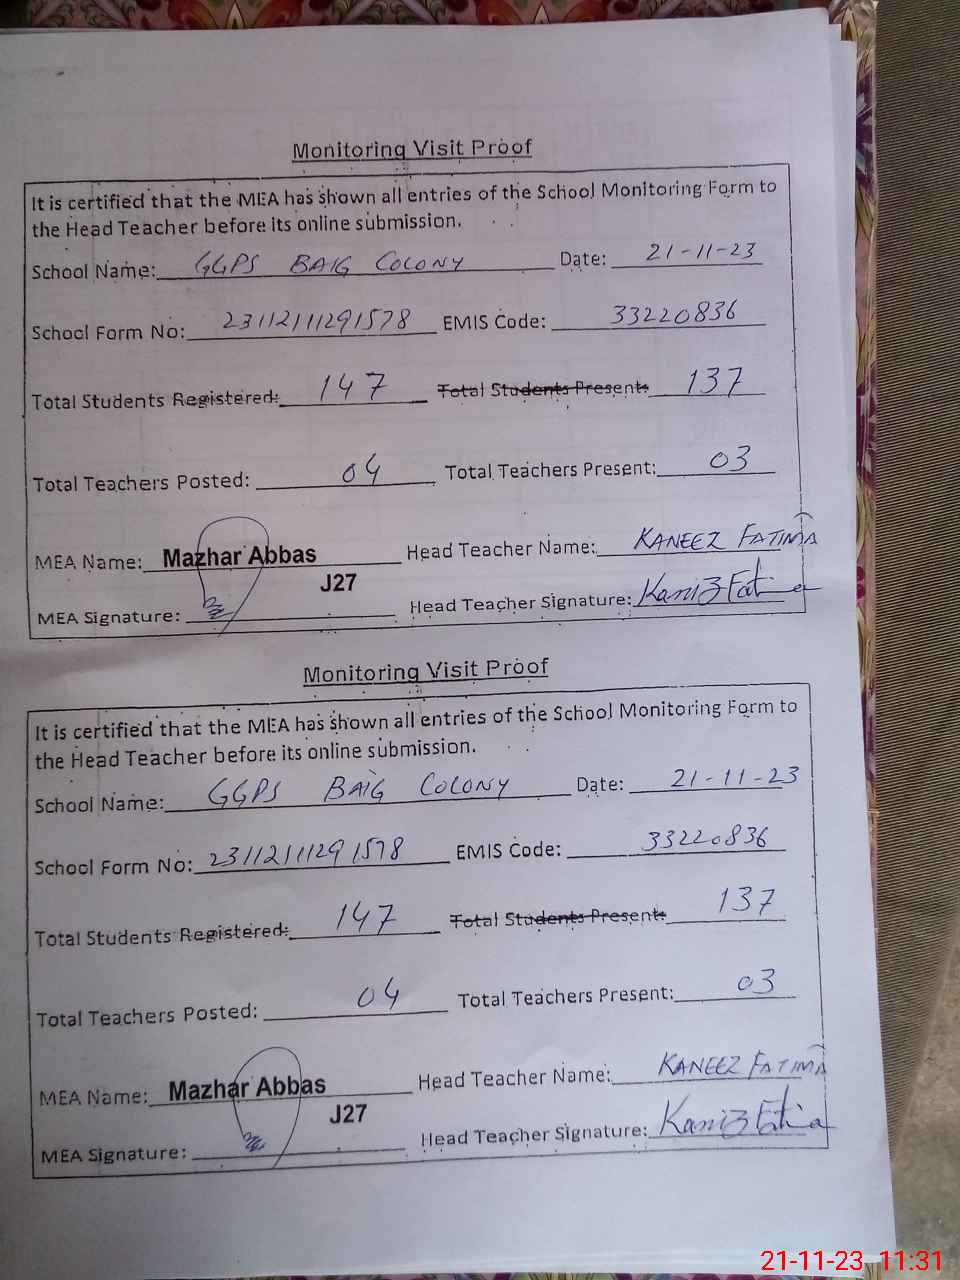 Monitoring Visit Proof
It is certified that the MEA has shown all entries of the School Monitoring Form to
the Head Teacher before its online submission.
School Name: GGPS BAIG COLONY Date: 21-11-23
School Form No: 23112111291578 EMIS Code: 33220836
Total Students Registered: 147 Total Students Present: 137
Total Teachers Posted: 04 Total Teachers Present: 03
MEA Name: Mazhar Abbas Head Teacher Name: KANEEZ FATIMA
J27
MEA Signature: Head Teacher Signature: Kaniz Fatima
Monitoring Visit Proof
It is certified that the MEA has shown all entries of the School Monitoring Form to
the Head Teacher before its online submission.
School Name: GGPS BAIG COLONY Date: 21-11-23
School Form No: 23112111291578 EMIS Code: 33220836
Total Students Registered: 147 Total Students Present: 137
Total Teachers Posted: 04 Total Teachers Present: 03
MEA Name: Mazhar Abbas Head Teacher Name: KANEEZ FATIMA
J27
MEA Signature: Head Teacher Signature: Kaniz Fatima
21-11-23 11:31